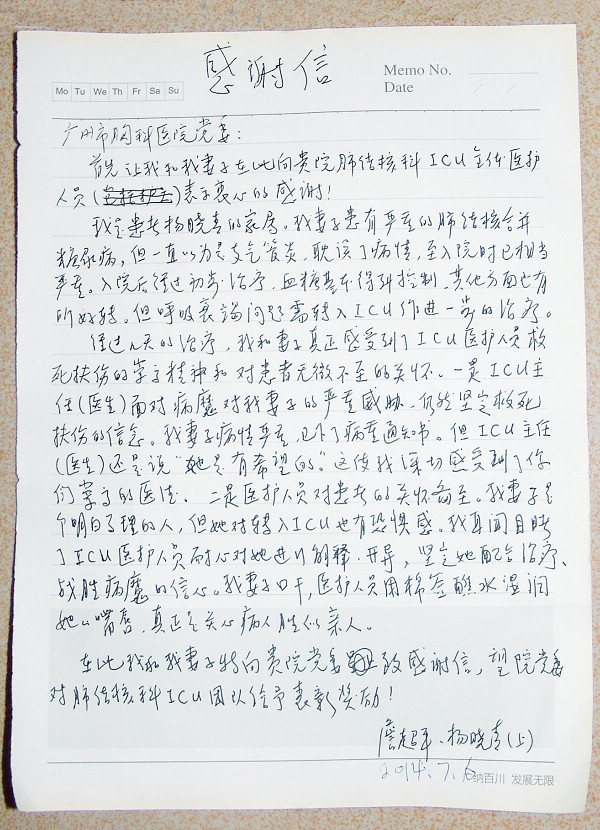 感谢信
Memo No.
Mo Tu We Th Fr Sa Su
Date
广州市胸科医院党委：
首先让我和我妻子在此向贵院肺结核科ICU主任医护
人员()表示衷心的感谢！
我是患者杨晓青的家属。我妻子患有严重的肺结核合并
糖尿病，但一直以为是支气管炎，耽误了病情，至入院时已相当
严重。入院后经过初步治疗，血糖基本得到控制，其他方面也有
所好转。但呼吸衰竭问题需转入ICU作进一步的治疗。
经过几天的治疗，我和妻子真正感受到了ICU医护人员救
死扶伤的崇高精神和对患者无微不至的关怀。一是ICU主
任(医生)面对病魔对我妻子的严重威胁，仍然坚定救死
扶伤的信念。我妻子病情严重，已下了病重通知书。但ICU主任
(医生)还是说“她是有希望的。”这使我深切感受到了你
们崇高的医德。二是医护人员对患者的关怀备至。我妻子是
个明白了理的人，但她对转入ICU也有恐惧感。我耳闻目睹
了ICU医护人员耐心对她进行解释、开导，坚定她配合治疗、
战胜病魔的信心。我妻子口干，医护人员用棉签蘸水湿润
她的嘴唇，真正是关心病人胜似亲人。
在此我和我妻子特向贵院党委致感谢信，望院党委
对肺结核科ICU团队给予表彰奖励！
詹超军、杨晓青(上)
2014.7.6
纳百川 发展无限